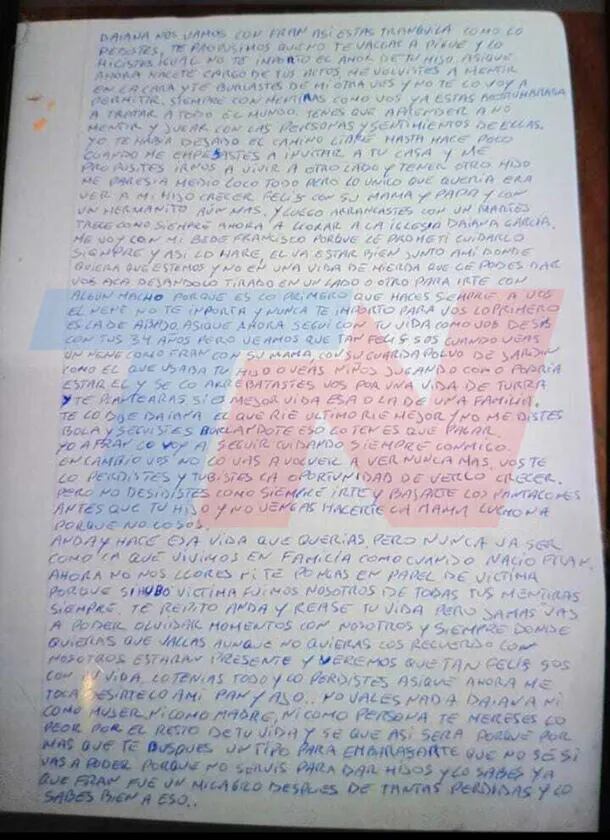 DAIANA NOS VAMOS CON FRAN ASI ESTAS TRANQUILA COMO LO
TE PROPUSIMOS QUE NO TE VALLAS A Y LO
HICISTES IGUAL NO TE INPORTO EL AMOR DE TU HIJO. ASIQUE
AHORA HACETE CARGO DE TUS ACTOS, ME VOLVISTES A MENTIR
EN LA CARA Y TE BURLASTES DE MI OTRA VES Y NO TE LO VOY A
PERMITIR. SIEMPRE CON MENTIRAS COMO VOS YA ESTAS ACOSTUMBRADA
A TRATAR A TODO EL MUNDO. TENES QUE APRENDER A NO
MENTIR Y JUGAR CON LAS PERSONAS Y SENTIMIENTOS DE ELLAS.
YO TE HABIA DEJADO EL CAMINO LIBRE HASTA HACE POCO
CUANDO ME EMPESASTES A INVITAR A TU CASA Y ME
PROPUSITES IRNOS A VIVIR A OTRO LADO Y TENER OTRO HIJO
ME PARESIA MEDIO LOCO TODO PERO LO UNICO QUE QUERIA ERA
VER A MI HIJO CRECER FELIS CON SU MAMA Y PAPA Y CON
UN HERMANITO AUN MAS. Y LUEGO ARRANCASTES CON UN MARTES
COMO SIEMPRE AHORA A LLORAR A LA IGLESIA DAIANA GARCIA.
ME VOY CON MI BEBE FRANCISCO PORQUE LE PROMETI CUIDARLO
SIEMPRE Y ASI LO HARE, EL VA ESTAR BIEN JUNTO AMI DONDE
QUIERA QUE ESTEMOS Y NO EN UNA VIDA DE MIERDA QUE LE PODES DAR
VOS ACA DEJANDOLO TIRADO EN UN LADO U OTRO PARA IRTE CON
ALGUN MACHO PORQUE ES LO PRIMERO QUE HACES SIEMPRE. A VOS
EL NENE NO TE INPORTA Y NUNCA TE IMPORTO PARA VOS LO PRIMERO
ES LA DE ABAJO. ASIQUE AHORA SEGUI CON TU VIDA COMO VOS
CON TUS 34 AÑOS PERO VEAMOS QUE TAN FELIS SOS CUANDO VEAS
UN NENE COMO FRAN CON SU MAMA, CON SU GUARDAPOLVO DE JARDIN
COMO EL QUE USABA TU HIJO O VEAS NIÑOS JUGANDO COMO PODRIA
ESTAR EL Y SE LO ARREBATASTES VOS POR UNA VIDA DE TURRA
Y TE PLANTEARAS SI ES MEJOR VIDA ESA O LA DE UNA FAMILIA.
TE LO DIJE DAIANA EL QUE RIE ULTIMO RIE MEJOR Y NO ME DISTES
BOLA Y SEGUISTES BURLANDOTE ESO LO TENES QUE PAGAR.
YO A FRAN LO VOY A SEGUIR CUIDANDO SIEMPRE CONMIGO.
EN CAMBIO VOS NO LO VAS A VOLVER A VER NUNCA MAS. VOS TE
LO PERDISTES Y TUBISTES LA OPORTUNIDAD DE VERLO CRECER.
PERO NO DESIDISTES COMO SIEMPRE IRTE Y BAJARTE LOS PANTALONES
ANTES QUE TU HIJO Y NO VENGAS HACERTE LA MAMA LUCHONA
PORQUE NO LO SOS.
ANDA Y HACE ESA VIDA QUE QUERIAS, PERO NUNCA VA SER
COMO LA QUE VIVIMOS EN FAMILIA COMO CUANDO NACIO FRAN.
AHORA NO NOS LLORES NI TE PONGAS EN PAPEL DE VICTIMA
PORQUE SI HUBO VICTIMA FUIMOS NOSOTROS DE TODAS TUS MENTIRAS
SIEMPRE. TE REPITO ANDA Y REASE TU VIDA PERO JAMAS VAS
A PODER OLVIDAR MOMENTOS CON NOSOTROS Y SIEMPRE DONDE
QUIERAS QUE VALLAS AUNQUE NO QUIERAS LOS RECUERDO CON
NOSOTROS ESTARAN PRESENTE Y VEREMOS QUE TAN FELIS SOS
CON TU VIDA. LO TENIAS TODO Y LO PERDISTES ASIQUE AHORA ME
TOCA DESIRTELO AMI PAN Y AJO.. NO VALES NADA DAIANA NI
COMO MUJER, NI COMO MADRE, NI COMO PERSONA TE MERESES LO
PEOR POR EL RESTO DE TU VIDA Y SE QUE ASI SERA PORQUE POR
MAS QUE TE BUSQUES UN TIPO PARA EMBARASARTE QUE NO SÉ SI
VAS A PODER PORQUE NO SERVIS PARA DAR HIJOS Y LO SABES YA
QUE FRAN FUE UN MILAGRO DESPUES DE TANTAS PERDIDAS Y LO
SABES BIEN A ESO..
TN